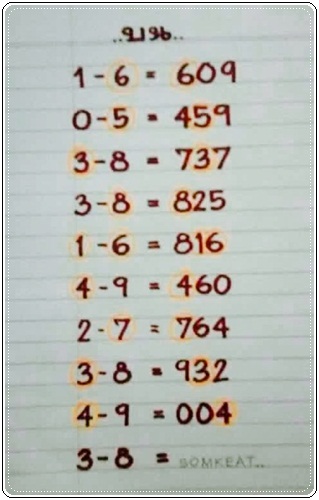 ..บน..
1 - 6 = 609
0 - 5 = 459
3 - 8 = 737
3 - 8 = 825
1 - 6 = 816
4 - 9 = 460
2 - 7 = 764
3 - 8 = 932
4 - 9 = 004
3 - 8 = SOMKEAT..